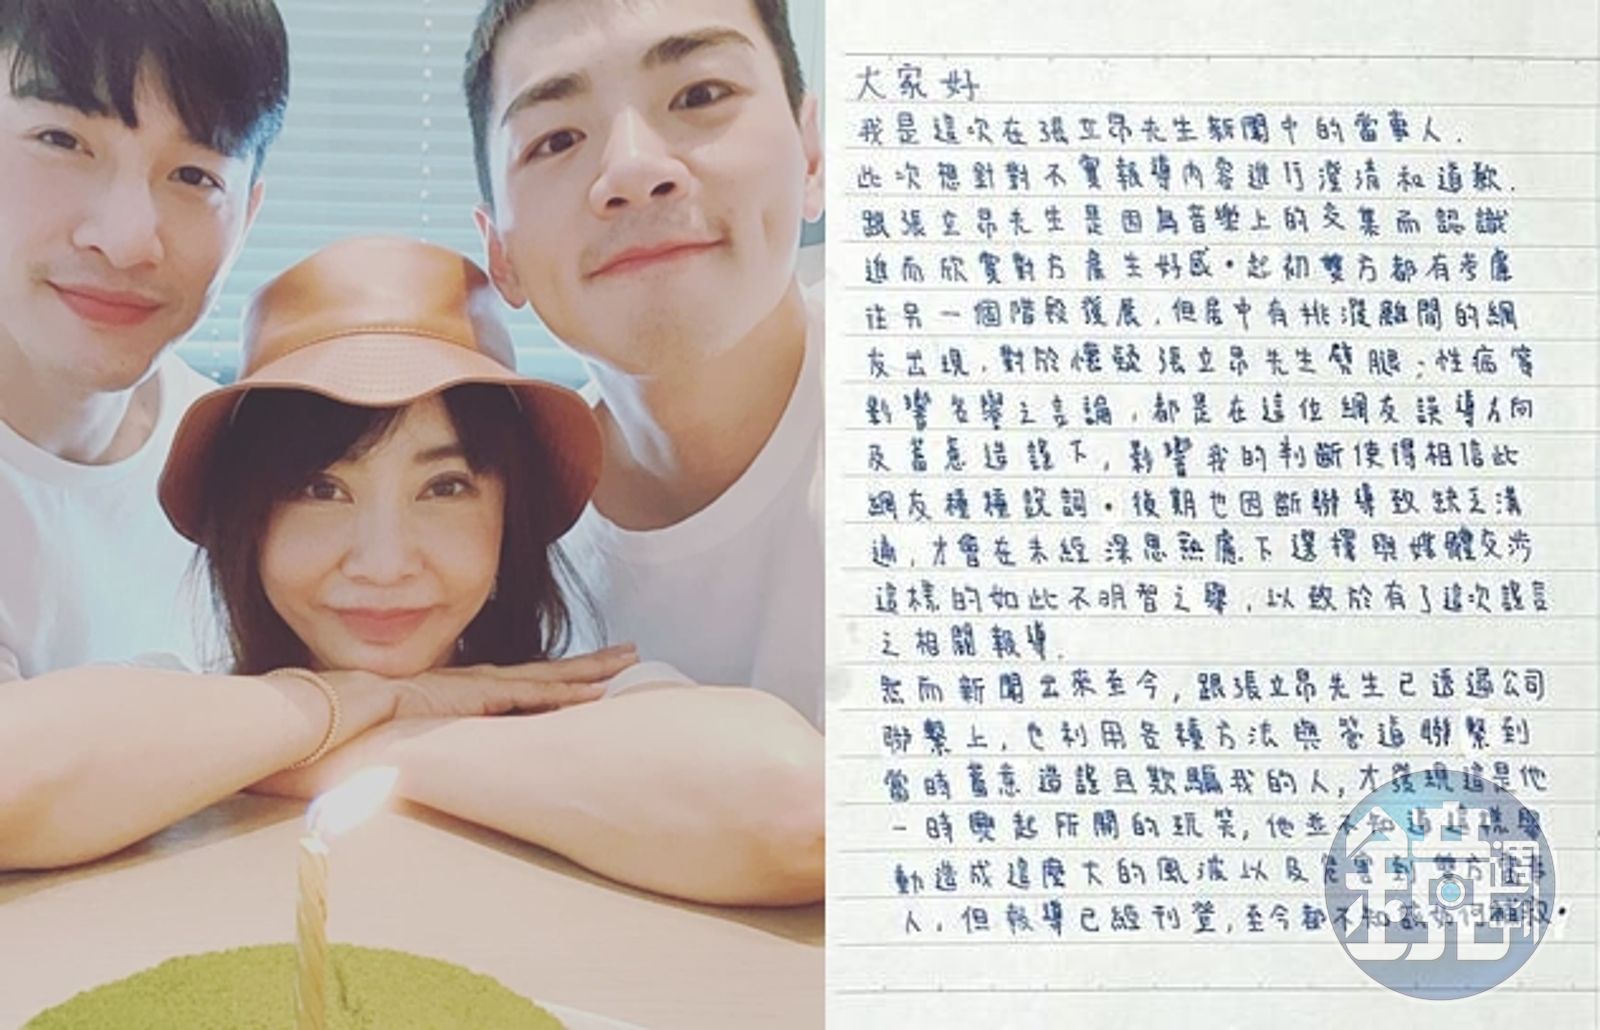 大家好
我是這次在張立昂先生新聞中的當事人.
此次想針對不實報導內容進行澄清和道歉.
跟張立昂先生是因為音樂上的交集而認識
進而欣賞對方產生好感。起初雙方都有考慮
往另一個階段發展,但居中有挑撥離間的網
友出現,對於懷疑張立昂先生劈腿;性病等
影響名譽之言論,都是在這位網友誤導方向
及蓄意造謠下,影響我的判斷使得相信此
網友種種說詞。後期也因斷聯導致缺乏溝
通,才會在未經深思熟慮下選擇與媒體交涉
這樣的如此不明智之舉,以致於有了這次謠言
之相關報導.
然而新聞出來至今,跟張立昂先生已透過公司
聯繫上,也利用各種方法與管道聯繫到
當時蓄意造謠且欺騙我的人,才發現這是他
一時興起所開的玩笑,他並不知道這樣舉
動造成這麼大的風波以及危害到雙方當事
人,但報導已經刊登,至今都不知該如何
鏡週刊